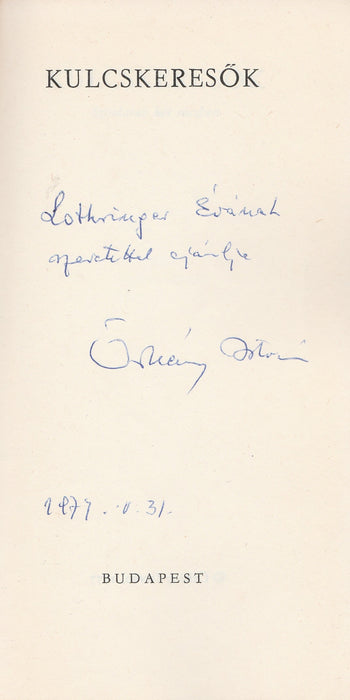 KULCSKERESŐK
Lothringer Évának
szeretettel ajánlja
Örkény István
1977. V. 31.
BUDAPEST